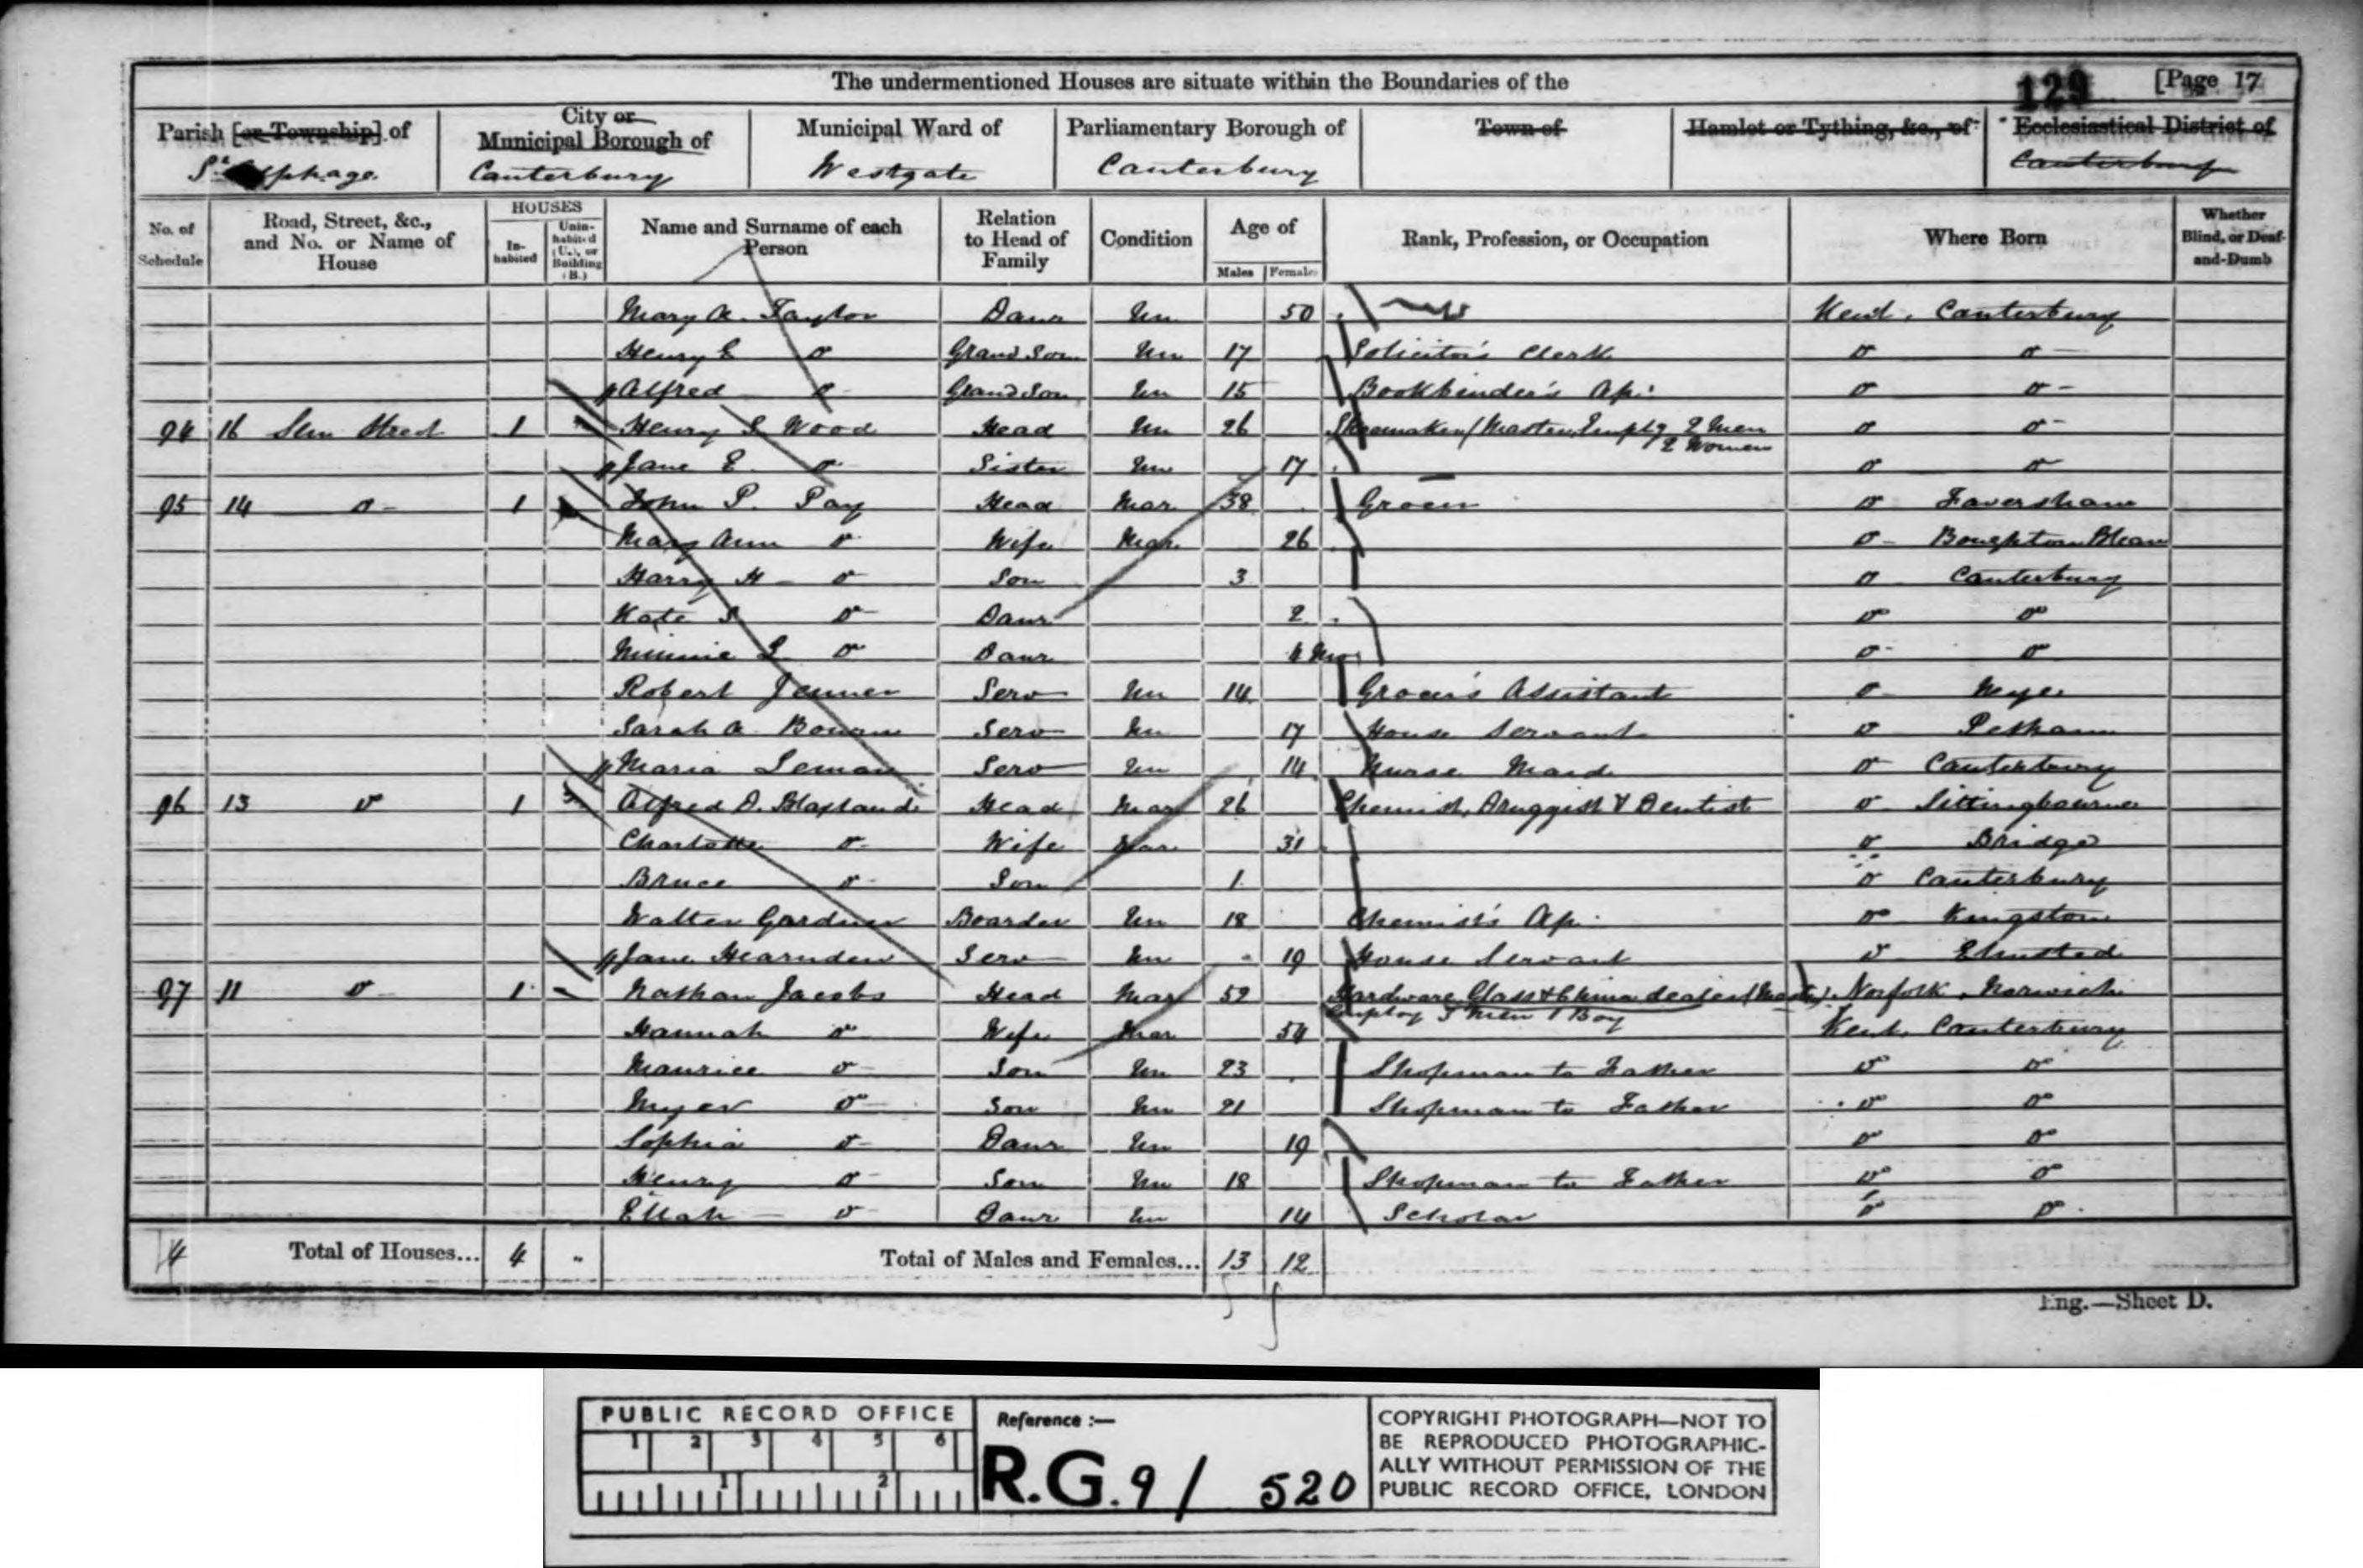 The undermentioned Houses are situate within the Boundaries of the
129 [Page 17
Parish [or Township] of
City or Municipal Borough of
Municipal Ward of
Parliamentary Borough of
Town of
Hamlet or Tything, &c., of
Ecclesiastical District of
St Alphage Canterbury Westgate Canterbury Canterbury
No. of Schedule
Road, Street, &c., and No. or Name of House
HOUSES
In-habited
Unin-habited (U.), or Building (B.)
Name and Surname of each Person
Relation to Head of Family
Condition
Age of
Males Females
Rank, Profession, or Occupation
Where Born
Whether Blind, or Deaf-and-Dumb
Mary A. Taylor Daur Un 50 Kent, Canterbury
Henry E do Grand Son Un 17 Solicitor's Clerk do do
Alfred do Grand Son Un 15 Bookbinder's Ap: do do
94 16 Street 1 Henry S Wood Head Un 26 Shoemaker (Master, Employg 2 Men 2 Women do do
Jane E. do Sister Un 17 do do
95 14 do 1 John P. Pay Head Mar 38 Grocer do Faversham
Mary Ann do Wife Mar 26 do Boughton Blean
Harry H do Son 3 do Canterbury
Kate S do Daur 2 do do
Minnie L do Daur 4 Mos do do
Robert Jenner Serv Un 14 Grocer's Assistant do Wye
Sarah A. Bourn Serv Un 17 House Servant do Petham
Maria Leman Serv Un 14 Nurse Maid do Canterbury
96 13 do 1 Alfred D. Blaxland Head Mar 26 Chemist, Druggist & Dentist do Sittingbourne
Charlotte do Wife Mar 31 do Bridge
Bruce do Son 1 do Canterbury
Walter Gardner Boarder Un 18 Chemist's Ap. do Kingston
Jane Hearnden Serv Un 19 House Servant do Elmsted
97 11 do 1 Nathan Jacobs Head Mar 59 Hardware, Glass & China dealer (Master) Norfolk, Norwich
Employ 3 Men 1 Boy
Hannah do Wife Mar 54 Kent, Canterbury
Maurice do Son Un 23 Shopman to Father do do
Myer do Son Un 21 Shopman to Father do do
Sophia do Daur Un 19 do do
Henry do Son Un 18 Shopman to Father do do
Ellah do Daur Un 14 Scholar do do
4 Total of Houses... 4 Total of Males and Females... 13 12
Eng.—Sheet D.
PUBLIC RECORD OFFICE
1 2 3 4 5 6
1 2
Reference :—
R.G. 9/ 520
COPYRIGHT PHOTOGRAPH—NOT TO
BE REPRODUCED PHOTOGRAPHIC-
ALLY WITHOUT PERMISSION OF THE
PUBLIC RECORD OFFICE, LONDON